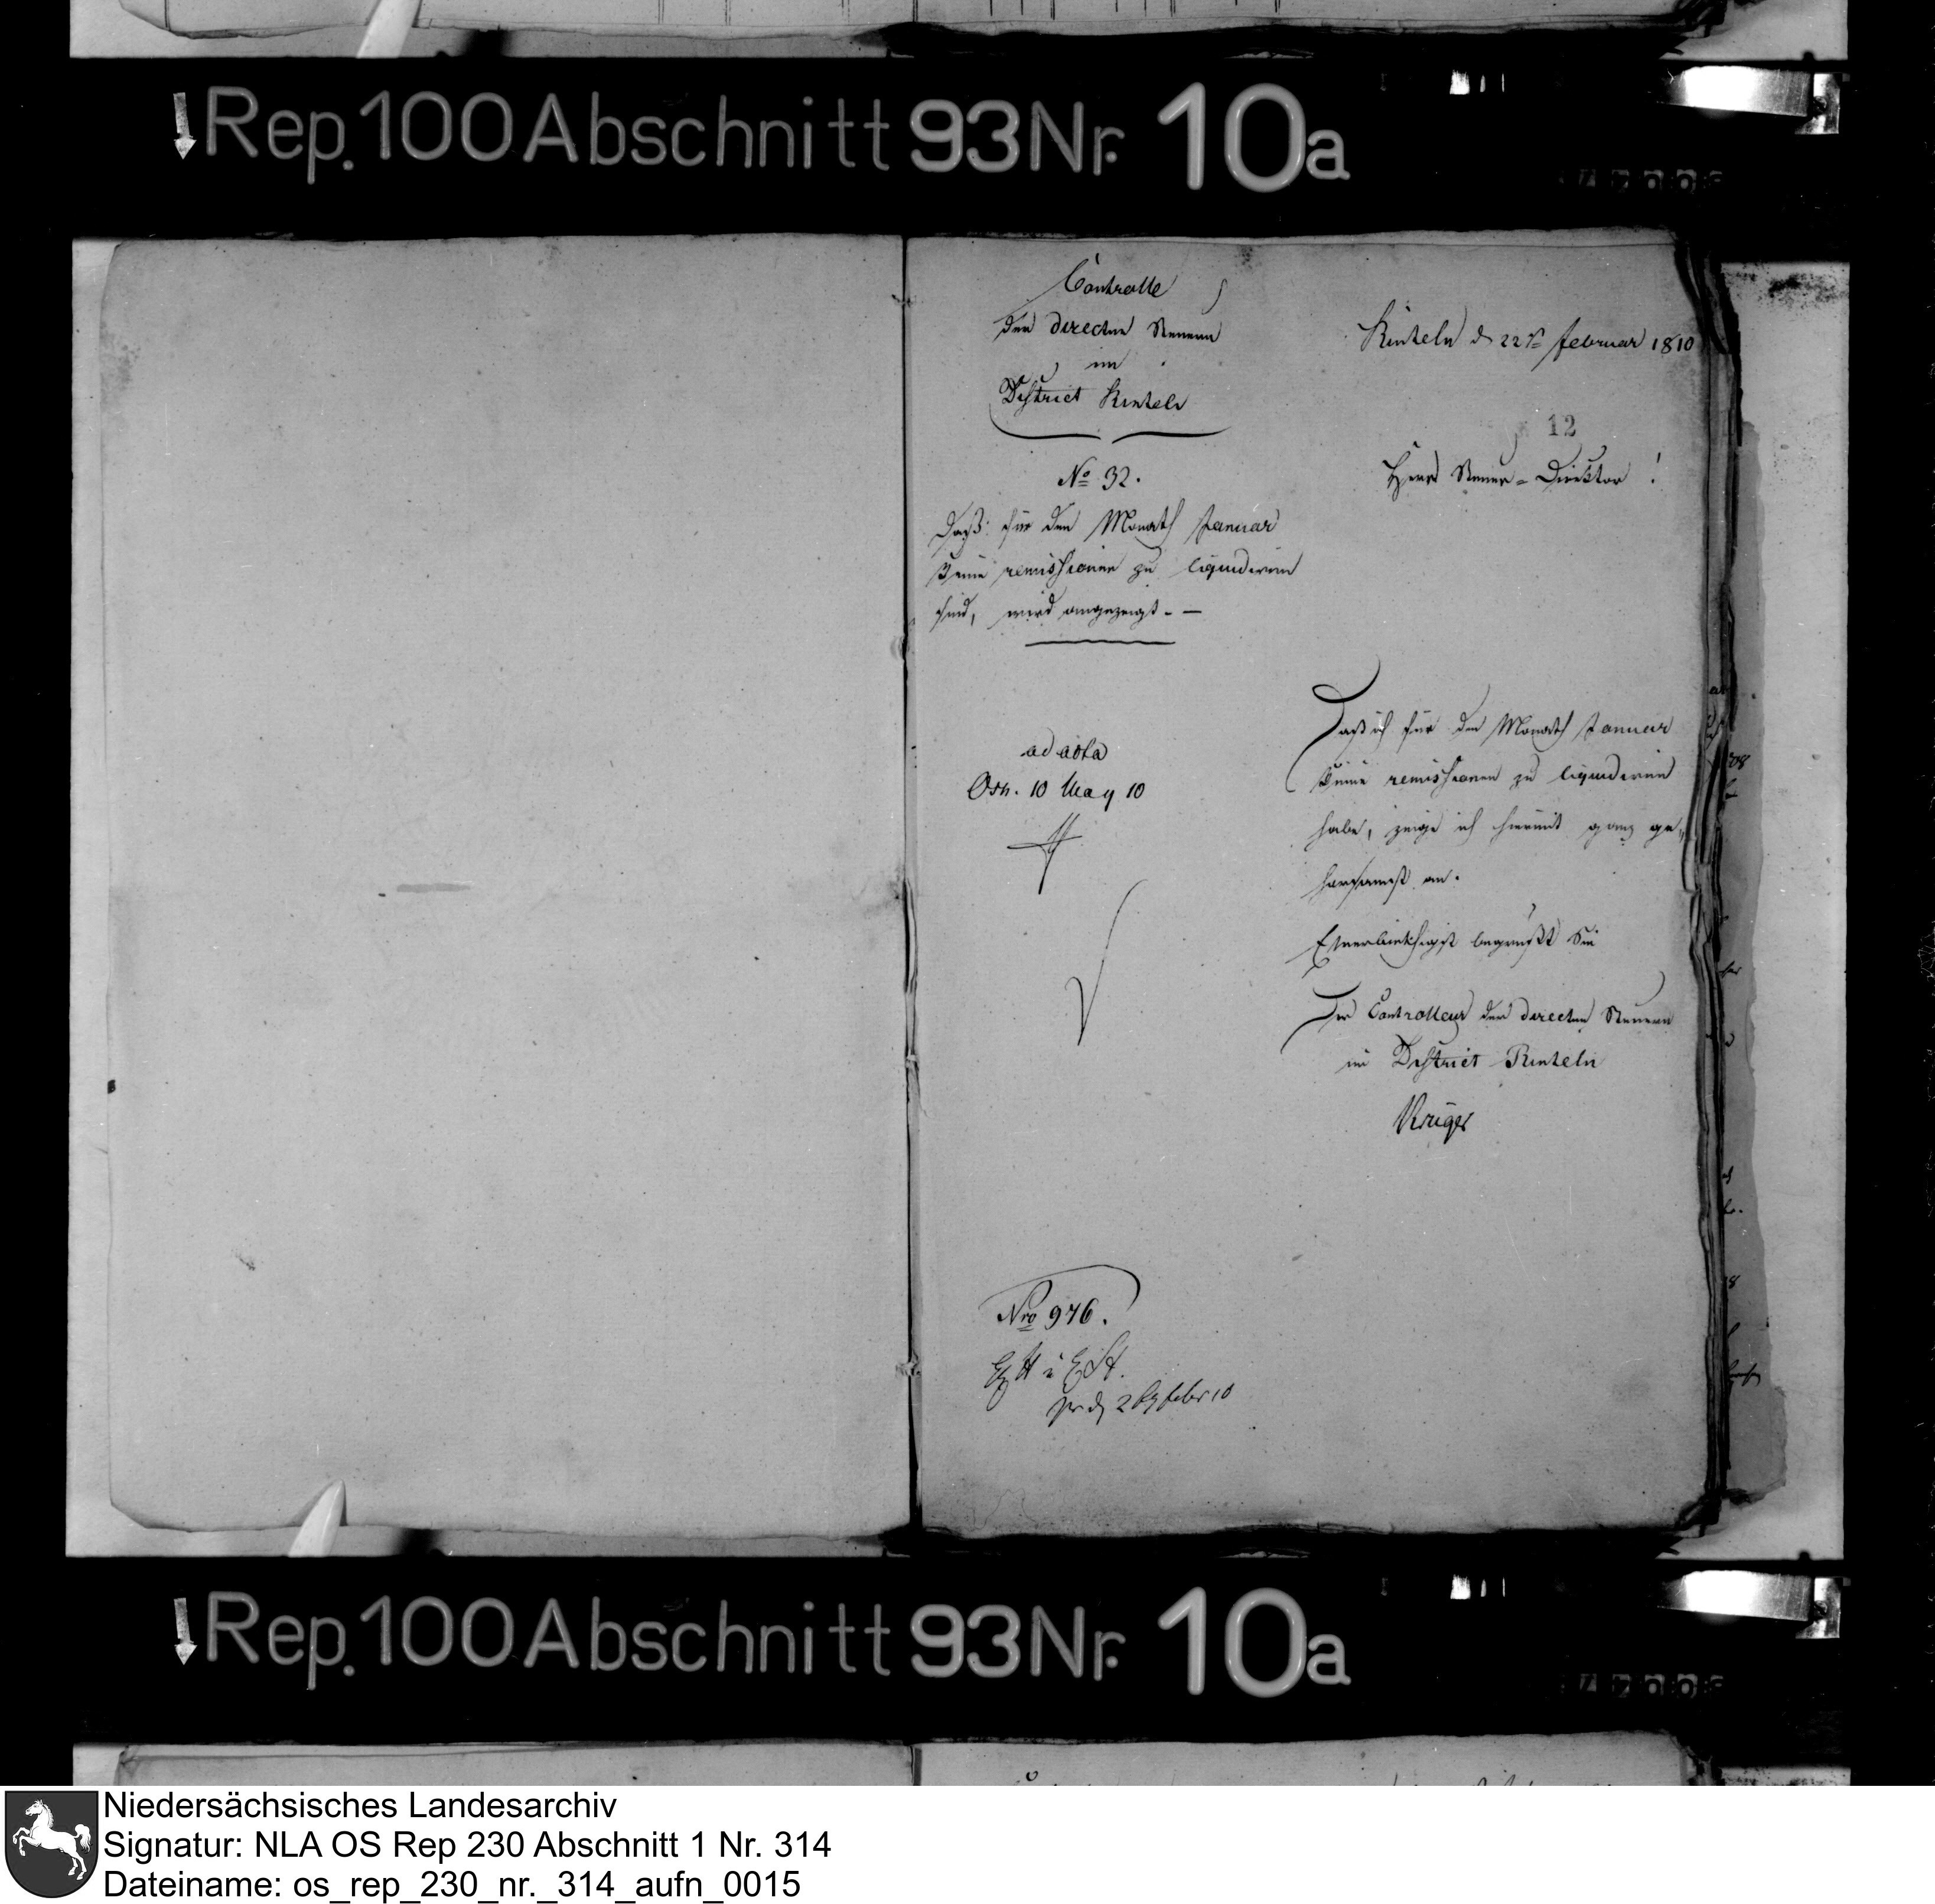 Rep. 100 Abschnitt 93 Nr. 10a
Controlle
der directen Steuern
im
District Rinteln
Rinteln d 22ten Februar 1810
12
Herr Steuer-Direktor!
No 32.
Daß für den Monath Januar
keine remissionen zu liquidiren
sind, wird angezeigt. —
ad acta
Osn. 10 May 10
Daß ich für den Monath Januar
keine remissionen zu liquidiren
habe, zeige ich hiermit ganz ge-
horsamst an.
Ehrerbietigst begrüßt Sie
Der Controlleur der directen Steuern
im District Rinteln
Krüger
Nro 976.
Febr 10
Rep. 100 Abschnitt 93 Nr. 10a
Niedersächsisches Landesarchiv
Signatur: NLA OS Rep 230 Abschnitt 1 Nr. 314
Dateiname: os_rep_230_nr._314_aufn_0015